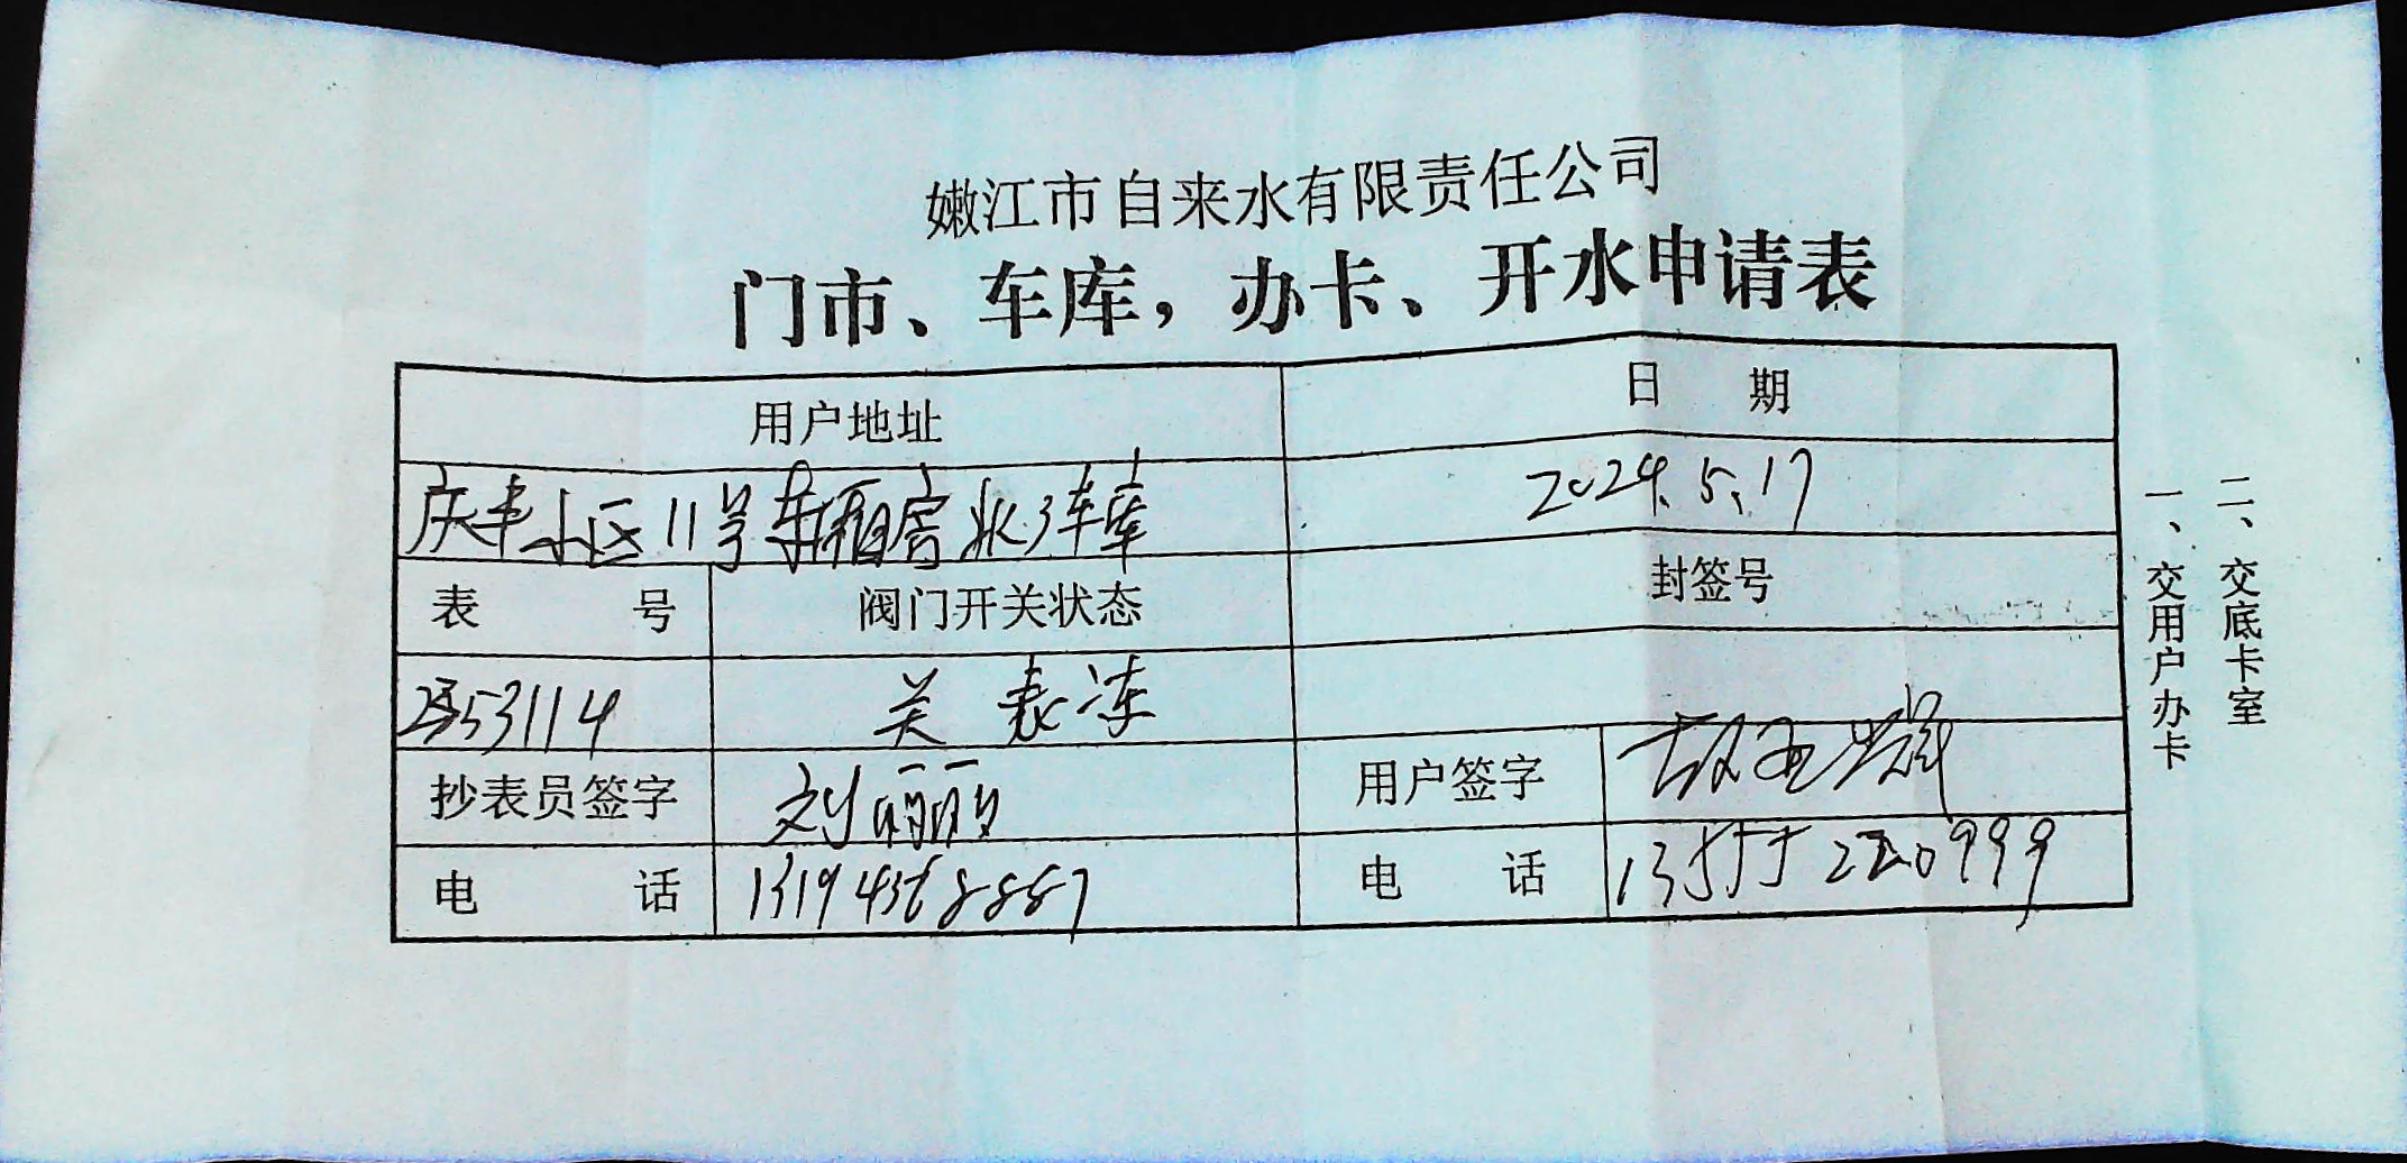 嫩江市自来水有限责任公司
门市、车库，办卡、开水申请表
用户地址 日 期
庆丰小区11号 3车库 2024.5.17
表 号 阀门开关状态 封签号
53114 关 表冻
抄表员签字 刘丽丽 用户签字
电 话 13194368887 电 话 13555220999
一、交用户办卡
二、交底卡室